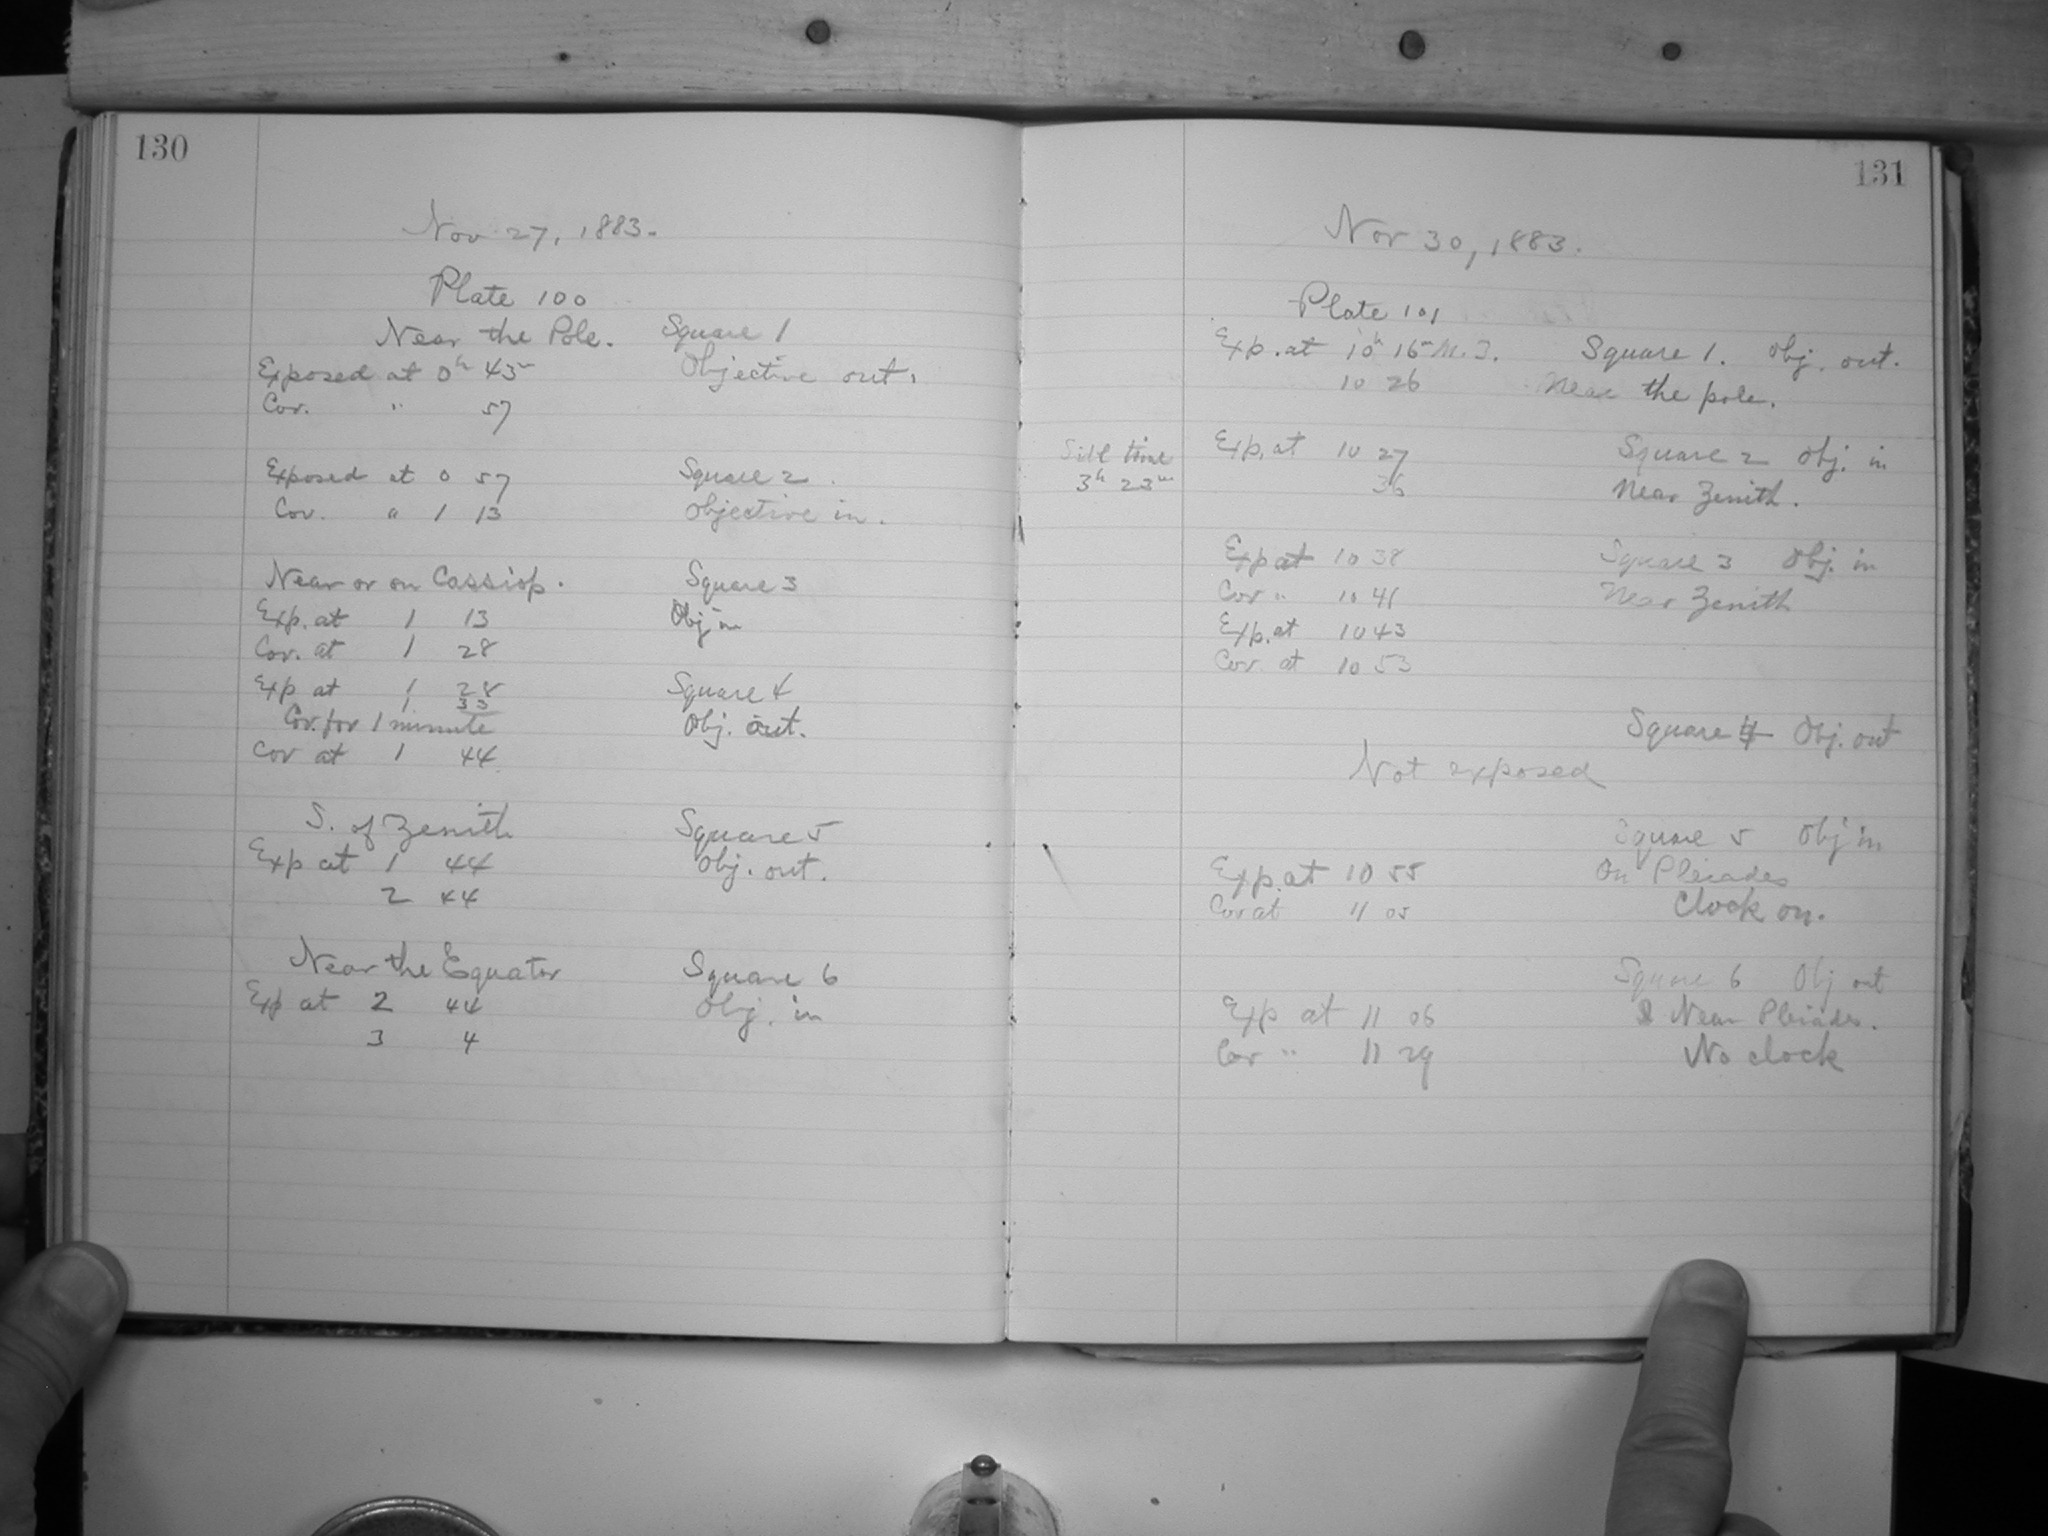 130
Nov 27, 1883.
Plate 100
Near the Pole. Square 1
Exposed at 0h 43m Objective out.
Cov. " 57
Exposed at 0 57 Square 2.
Cov. " 1 13 Objective in.
Near or on Cassiop. Square 3
Exp. at 1 13 Obj in
Cov. at 1 28
Exp at 1 28 Square 4
1 33
Cov. for 1 minute Obj. out.
Cov at 1 44
S. of Zenith Square 5
Exp at 1 44 Obj. out.
2 44
Near the Equator Square 6
Exp at 2 44 Obj. in
3 4
131
Nov 30, 1883.
Plate 101
Exp. at 10h 16m M.T. Square 1. Obj. out.
10 26 Near the pole.
Sidl time Exp. at 10 27 Square 2 Obj. in
3h 23m 36 Near Zenith.
Exp at 10 38 Square 3 Obj. in
Cov " 10 41 Near Zenith
Exp. at 10 43
Cov. at 10 53
Square 4 Obj. out
Not exposed
Square 5 Obj in
Exp. at 10 55 On Pleiades
Cov at 11 05 Clock on.
Square 6 Obj out
Exp at 11 06 Near Pleiades.
Cov " 11 29 No clock